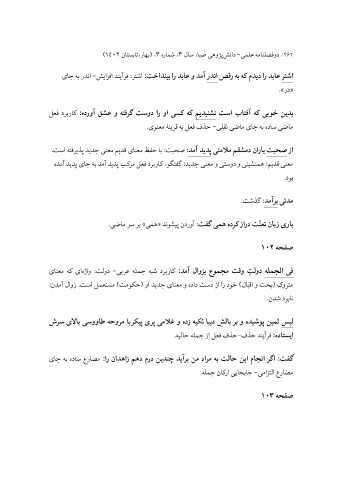 ۲۶۲/ دوفصلنامه علمی- دانش‌پژوهی صبا، سال ۳، شماره ۳، (بهار، تابستان ۱۴۰۲)
اشتر عابد را دیدم که به رقص اندر آمد و عابد را بینداخت: اشتر: فرآیند افزایش- اندر به جای
«در».
بدین خوبی که آفتاب است نشنیدیم که کسی او را دوست گرفته و عشق آورده: کاربرد فعل
ماضی ساده به جای ماضی نقلی- حذف فعل به قرینهٔ معنوی.
از صحبت یاران دمشقم ملامتی پدید آمد: صحبت: با حفظ معنای قدیم معنی جدید پذیرفته است.
معنی قدیم: همنشینی و دوستی و معنی جدید: گفتگو. کاربرد فعل مرکب پدید آمد به جای پدید آمده
بود.
مدتی برآمد: گذشت.
باری زبان تعنّت دراز کرده همی گفت: آوردن پیشوند «همی» بر سر ماضی.
صفحه ۱۰۲
فی الجمله دولت وقت مجموع بزوال آمد: کاربرد شبه جمله عربی- دولت: واژه‌ای که معنای
متروک (بخت و اقبال) خود را از دست داده و معنای جدید او (حکومت) مستعمل است. زوال آمدن:
نابود شدن.
لبس ثمین پوشیده و بر بالش دیبا تکیه زده و غلامی پری پیکر با مروحه طاووسی بالای سرش
ایستاده: فرآیند حذف-حذف فعل از جمله حالیه.
گفت: اگر انجام این حالت به مراد من برآید چندین درم دهم زاهدان را: مضارع ساده به جای
مضارع التزامی- جابجایی ارکان جمله.
صفحه ۱۰۳